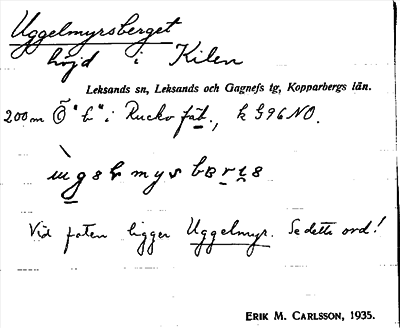 Uggelmyrsberget
höjd i Kilen
Leksands sn, Leksands och Gagnefs tg, Kopparbergs län.
200 m Ö "b" i Rucko fäb., k G96 NO.
Vid foten ligger Uggelmyr. Se detta ord!
ERIK M. CARLSSON, 1935.